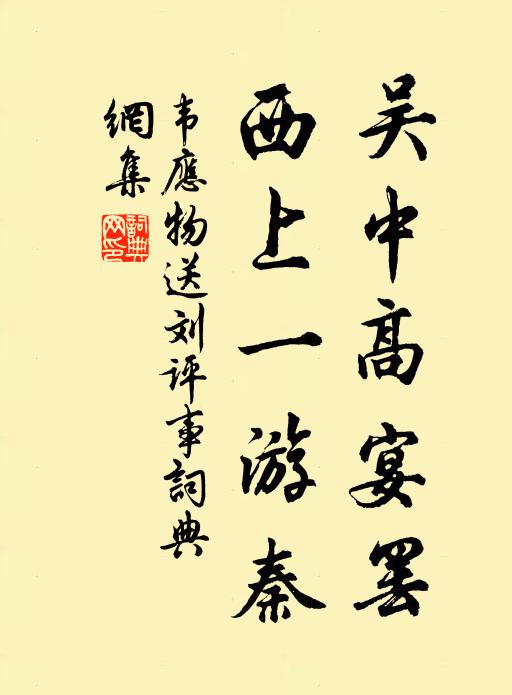 吴中高宴罢
西上一游秦
韦應物送刘评事詞典
網集
詞典
网印